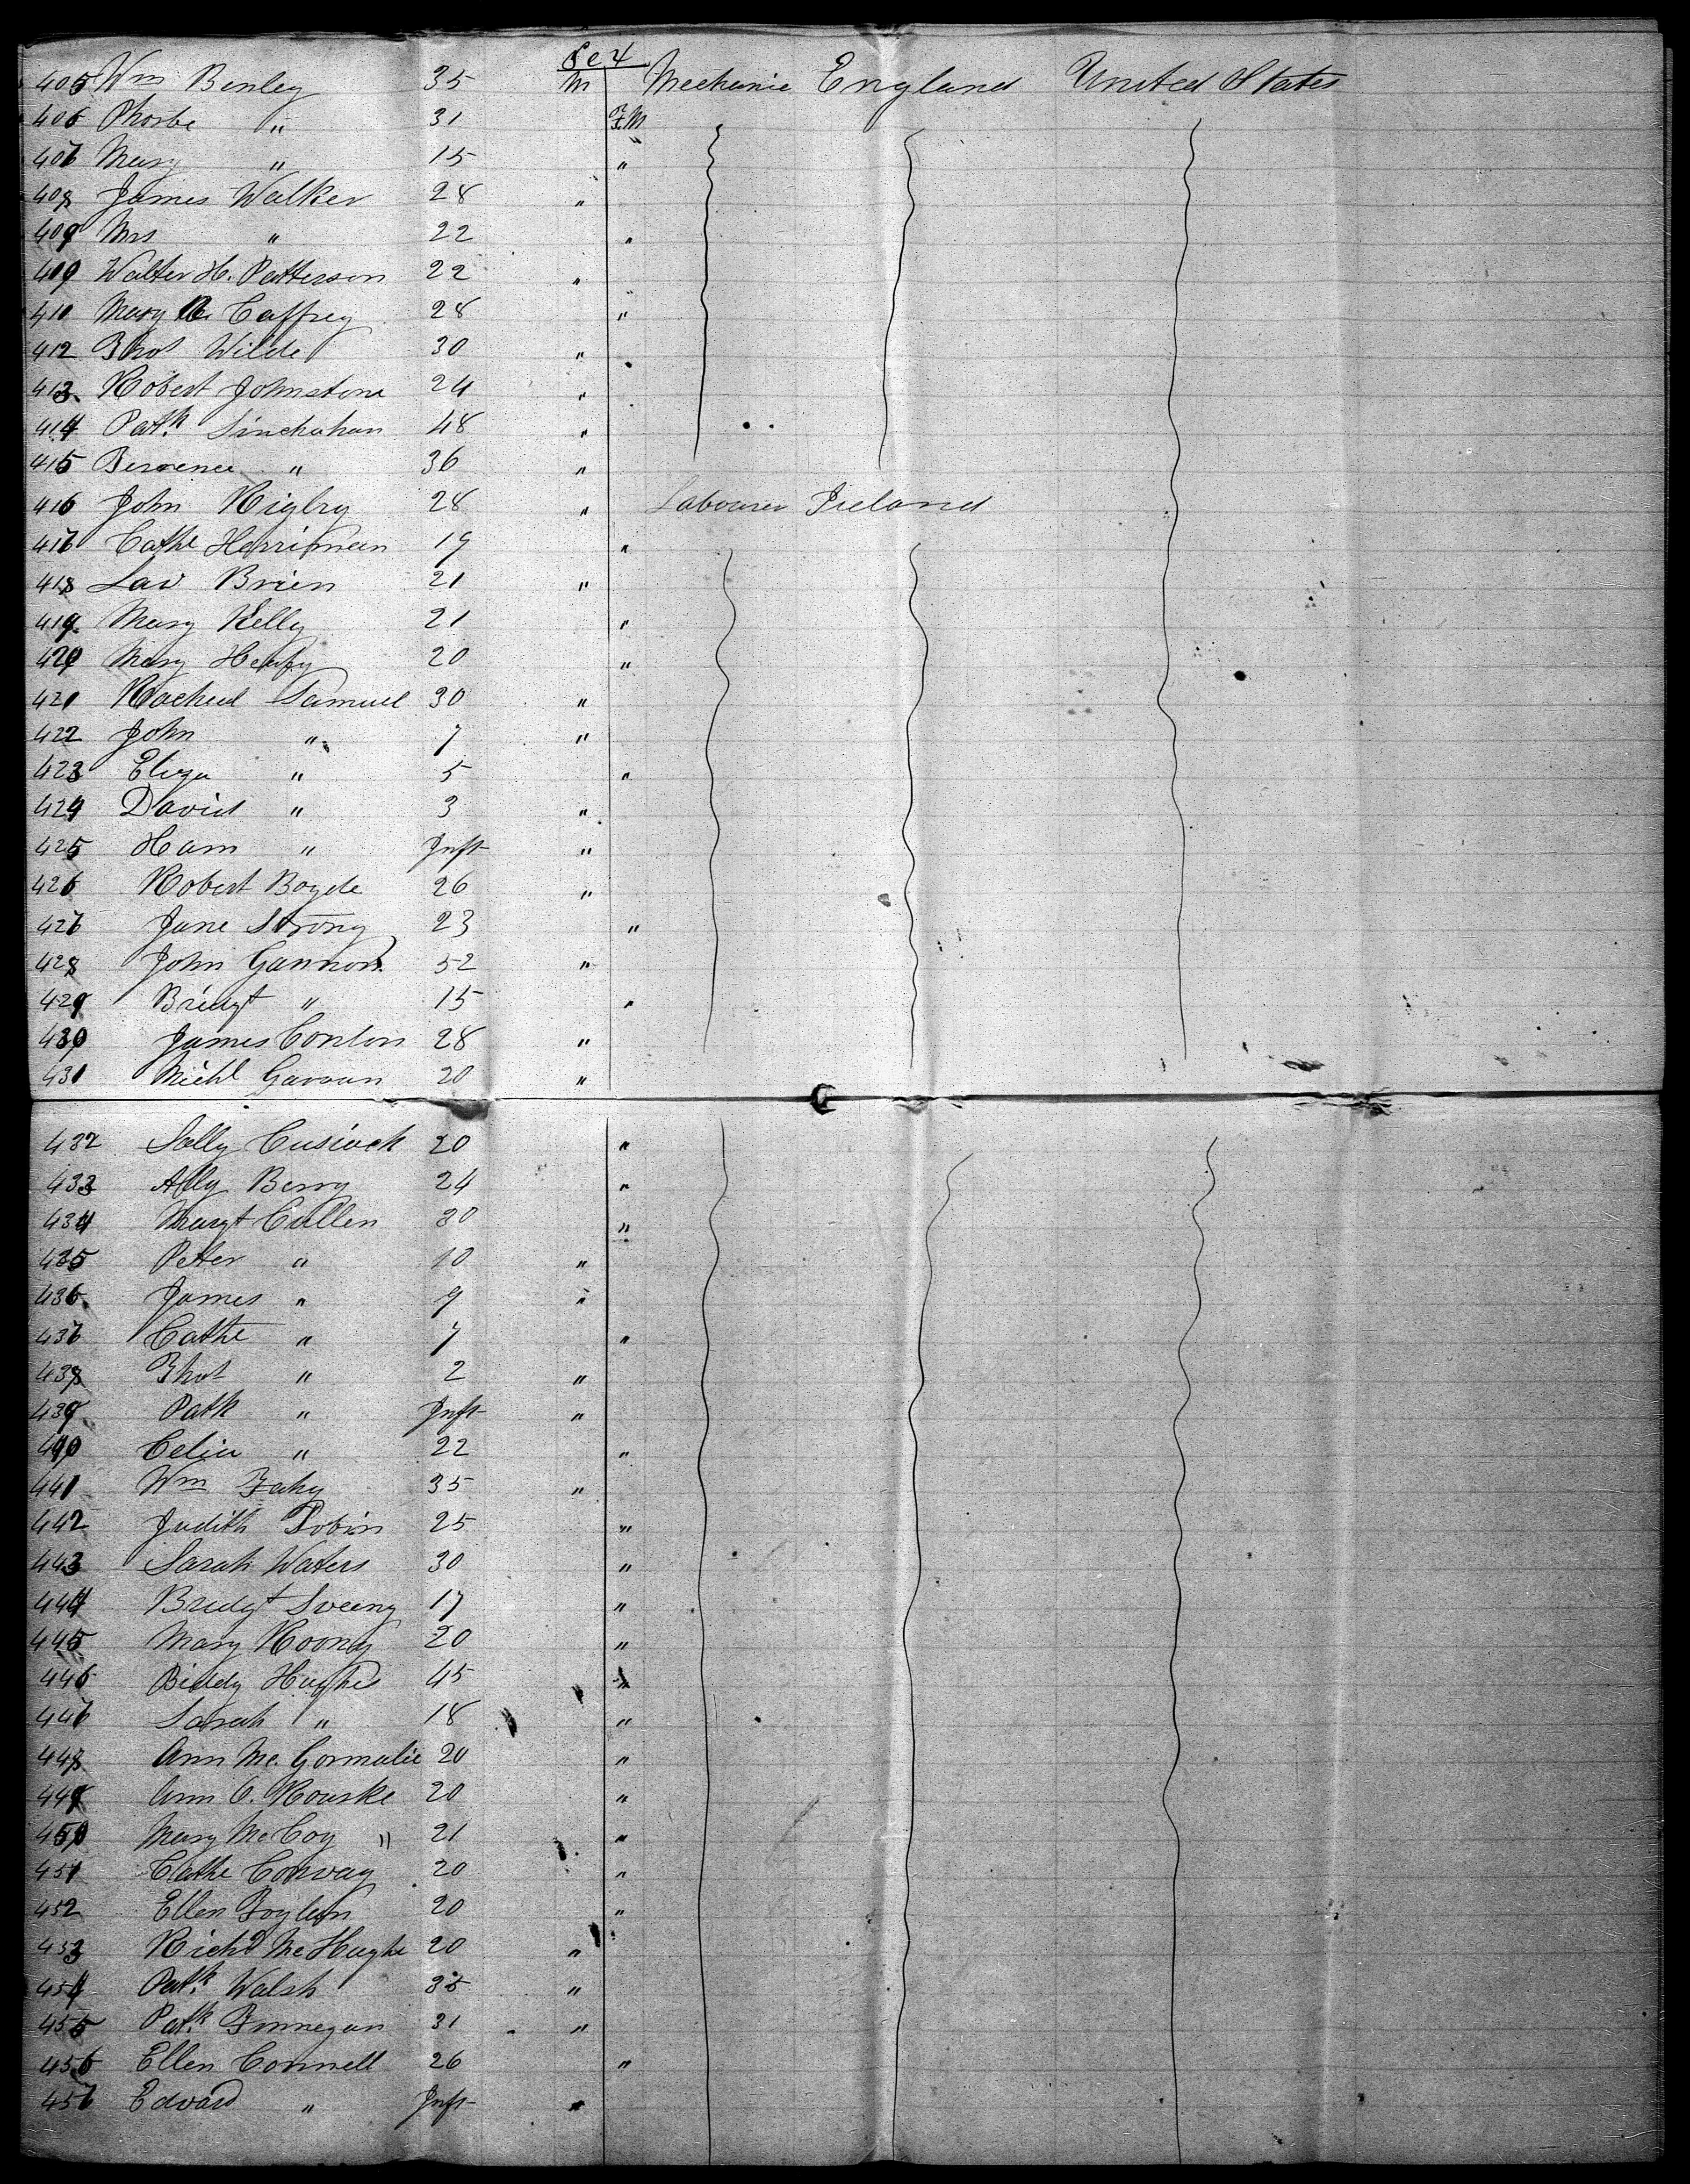 Sex
405 Wm Benley 35 M Mechanic England United States
406 Phoebe " 31 FM
407 Mary " 15 "
408 James Walker 28 "
409 Mrs " 22 "
410 Walter H. Patterson 22 "
411 Mary Mc Caffrey 28 "
412 Thos Wilde 30 "
413 Robert Johnstone 24 "
414 Patk 48 "
415 " 36 "
416 John Rigby 28 " Labourer Ireland
417 Cathe Herriman 19 "
418 Lav Brien 21 "
419 Mary Kelly 21 "
420 Mary 20 "
421 Racheal Samuel 30 "
422 John " 7 "
423 Eliza " 5 "
424 David " 3 "
425 Ham " Inft "
426 Robert Boyde 26 "
427 Jane Strong 23 "
428 John Gannon 52 "
429 Bridgt " 15 "
430 James Conlon 28 "
431 Michl Gavaan 20 "
432 Sally Cusiack 20 "
433 Ally Berry 24 "
434 Margt Cullen 30 "
435 Peter " 10 "
436 James " 9 "
437 Cathe " 7 "
438 Thos " 2 "
439 Patk " Inft "
440 Celia " 22 "
441 Wm Fahy 35 "
442 Judith Tobin 25 "
443 Sarah Waters 30 "
444 Bridgt Sweeny 17 "
445 Mary Roony 20 "
446 Biddy Hughes 45 "
447 Sarah " 18 "
448 Ann Mc. Gormalie 20 "
449 Ann O. Rourke 20 "
450 Mary McCoy " 21 "
451 Cathe Conway 20 "
452 Ellen 20 "
453 Richd McHughe 20 "
454 Patk. Walsh 35 "
455 Patk. Finnegan 31 "
456 Ellen Connell 26 "
457 Edward " Inft "